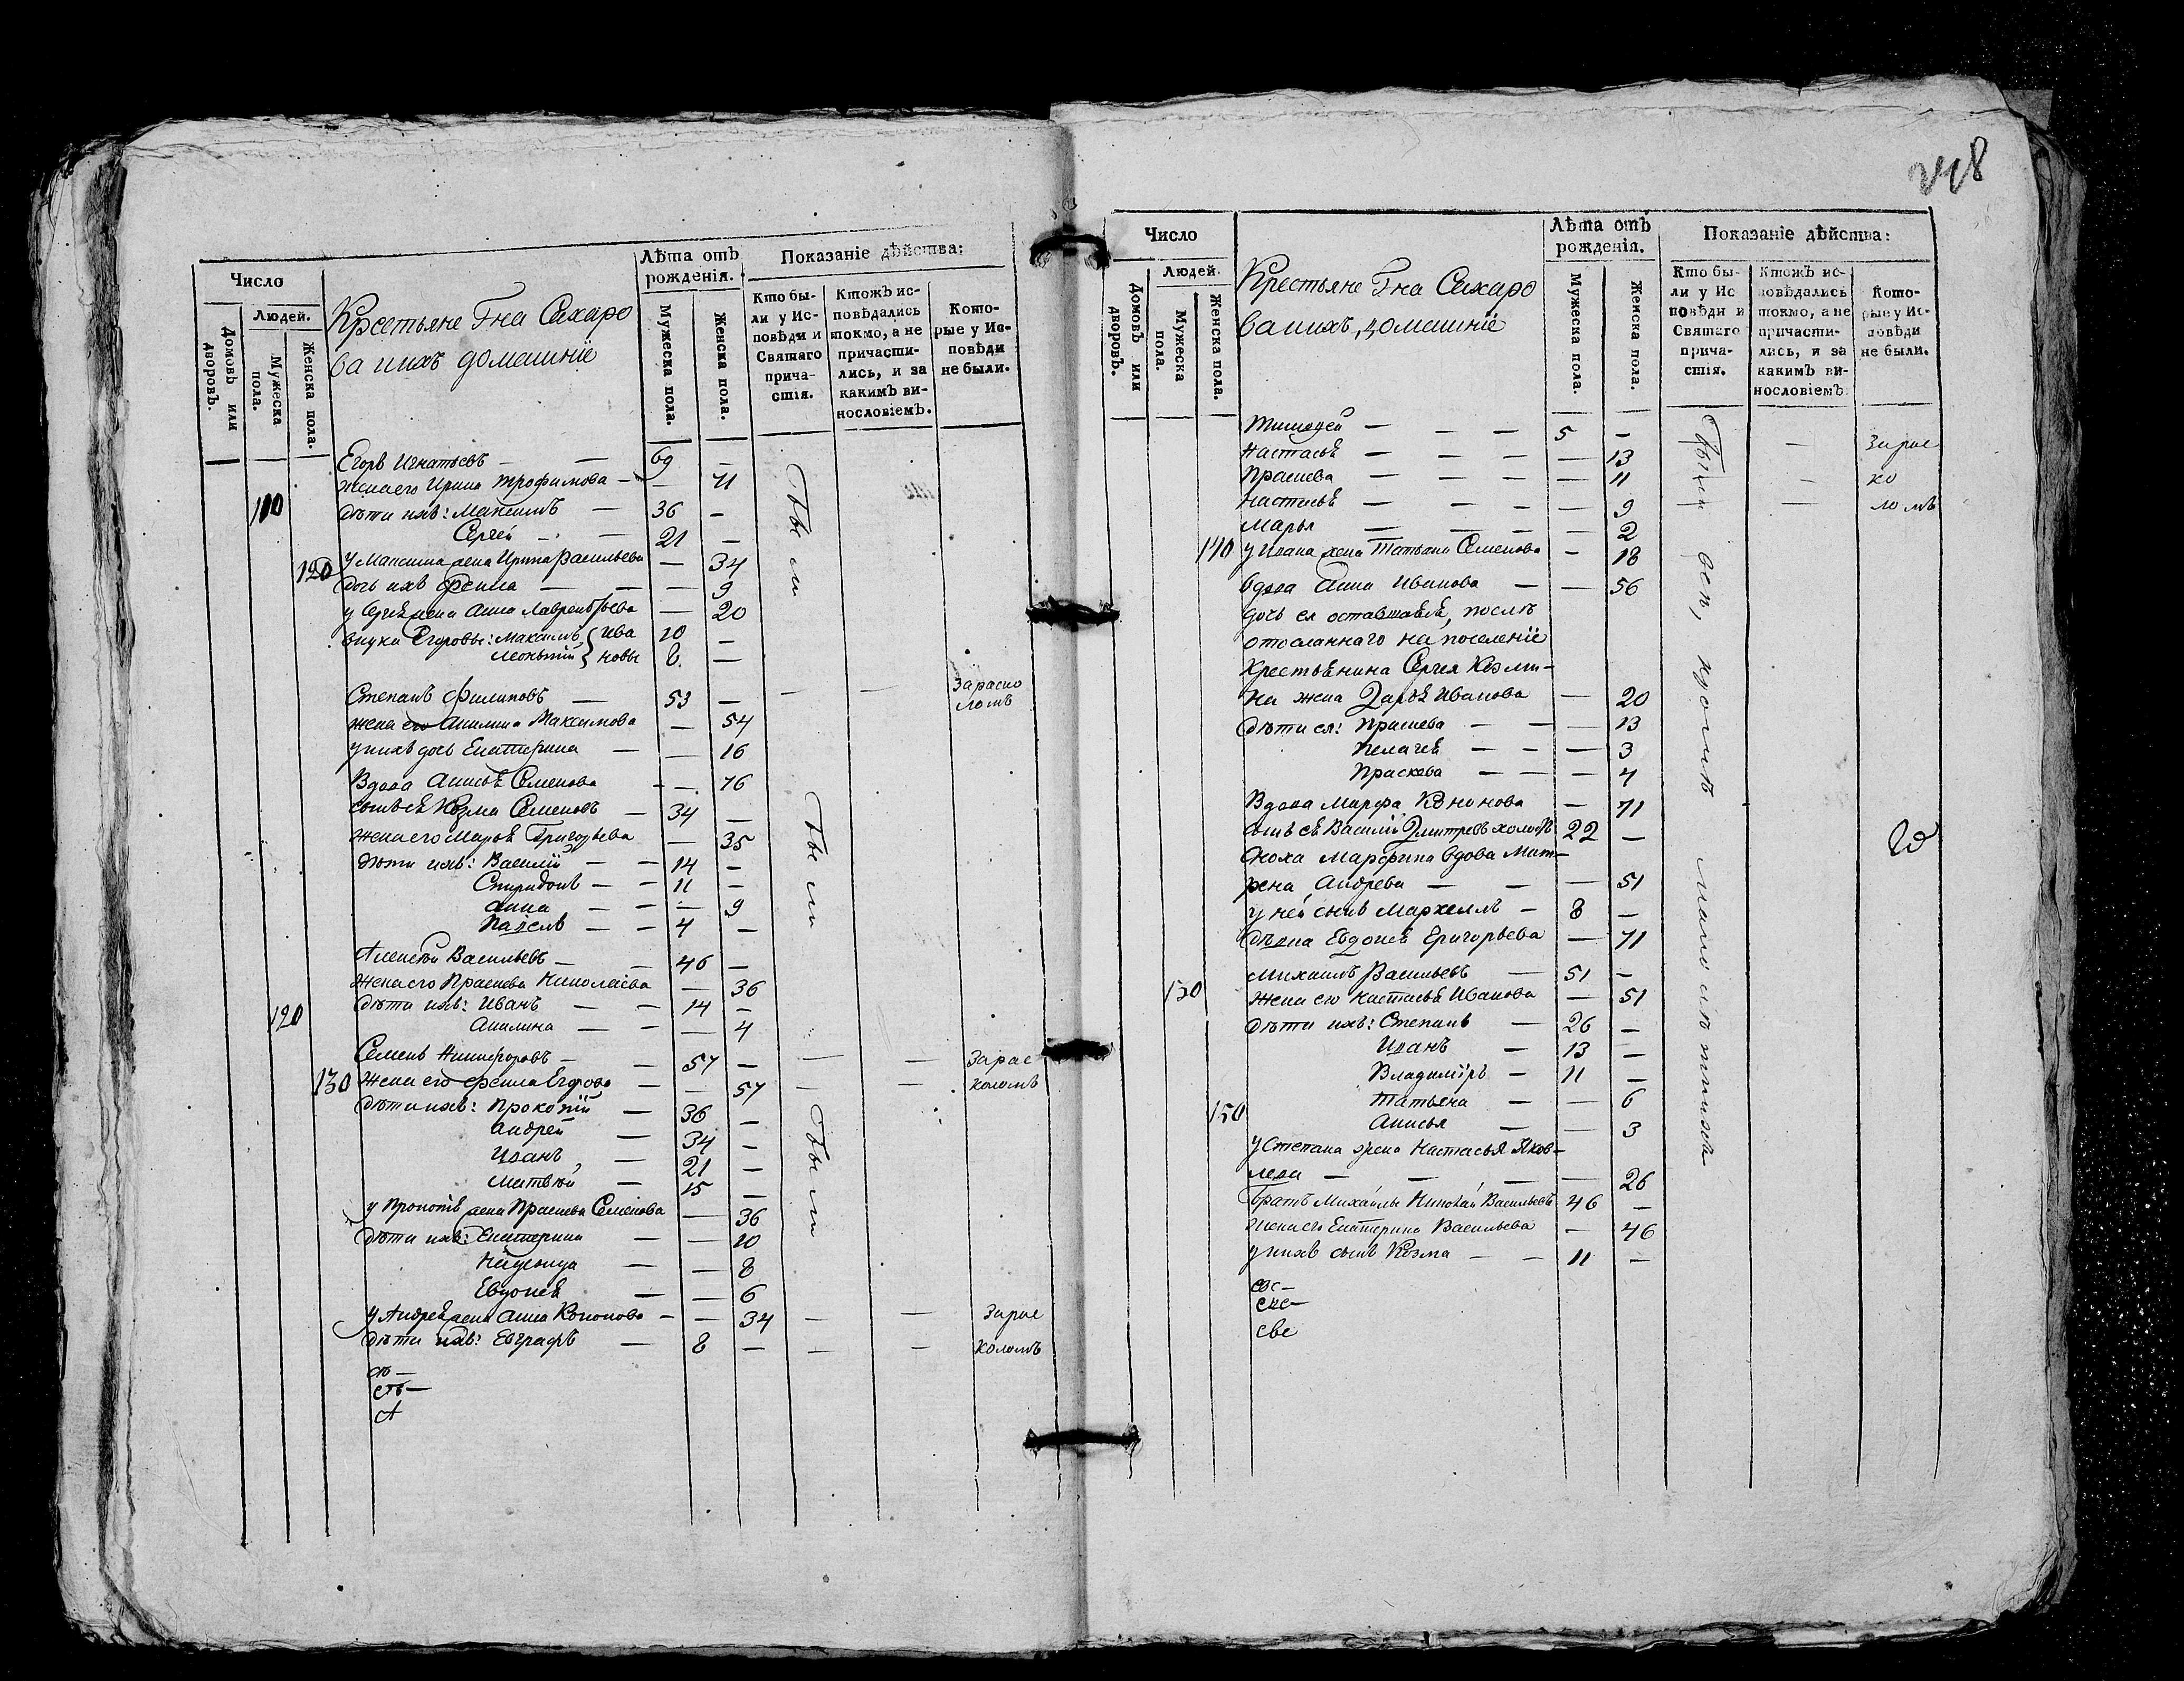 Число
Людей.
Домовъ или дворовъ.
Мужеска пола.
Женска пола.
Крестьяне Гна Сахаро
ва ихъ домашнїе
Лѣта отъ рожденія.
Мужеска пола.
Женска пола.
Показаніе дѣйства:
Кто бы-
ли у Ис-
повѣди и
Святаго
прича-
стія.
Ктожъ ис-
повѣдались
токмо, а не
причасти-
лись, и за
какимъ ви-
нословіемъ.
Кото-
рые у Ис-
повѣди
не были.
Егоръ Игнатьевъ — 69 —
жена его Ирина Трофимова — — 71
110 дѣти ихъ: Максимъ — 36 —
Сергей — 21 —
120 у Максима жена Ирина Васильева — 34
дочь ихъ Фекла — — 9
у Сергѣя жена Анна Лаврентьева — 20
внуки Егоровы: Максимъ } Ива 10 —
Леонътїй } новы 8 —
Были
Степанъ Филиповъ — 53 — — — За раско
ломъ
жена его Акилина Максимова — 54
у нихъ дочь Екатерина — — 16
Вдова Анисьѣ Семенова — — 76
сынъ еѣ Козма Семеновъ — 34 —
жена его Марьѣ Григорьева — 35
дѣти ихъ: Василїй — — 14 —
Спиридонъ — — 11 —
Анна — — — 9
Павелъ — — 4 —
Были
Алексѣй Васильевъ — 46 —
жена его Праскева Николаева — 36
дѣти ихъ: Иванъ — — 14 —
120 Акилина — — — 4
Семенъ Никифоровъ — 57 — — — За рас
130 жена его Фекла Егорова — — 57 — — коломъ
дѣти ихъ: Прокопїй — 36 —
Андрей — 34 —
Иванъ — 21 —
Матвѣй — 15 —
у Прокопїѣ жена Праскева Семенова — 36
дѣти ихъ: Екатерина — — 10
Надежда — — 8
Евдокиѣ — — 6
Были
у Андреѣ жена Анна Кононова — — 34 — — За рас
дѣти ихъ: Евграфъ — 8 — — — коломъ
248
Число
Людей.
Домовъ или дворовъ.
Мужеска пола.
Женска пола.
Крестьяне Гна Сахаро
ва ихъ, домашнїе
Лѣта отъ рожденія.
Мужеска пола.
Женска пола.
Показаніе дѣйства:
Кто бы-
ли у Ис
повѣди и
Святаго
прича-
стія.
Ктожъ ис-
повѣдались
токмо, а не
причасти-
лись, и за
какимъ ви-
нословіемъ
Кото-
рые у Ис-
повѣди
не были.
Тимофей — — — 5 — — За рас
Настасьѣ — — — — 13
Праскева — — — — 11 — ко
Настасьѣ — — — — 9 — ломъ
Марья — — — — 2
140 у Ивана жена Татьяна Семенова — 18
Вдова Анна Иванова — — 56
дочь ея оставшаѣсѣ, послѣ
отосланнаго на поселенїе
Крестьѣнина Сергея Козми-
на жена Дарьѣ Иванова — 20
дѣти ея: Праскева — — — 13
Пелагеѣ — — — 3
Праскева — — — 4
Вдова Марфа Кононова — 71
сынъ еѣ Василїй Дмитревъ холостъ 22 —
сноха Марфина вдова Мат-
рена Андрева — — — 51
у ней сынъ Маркеллъ — 8 —
Дѣвка Евдокиѣ Григорьева — 71
Михаилъ Васильевъ — 51 —
130 жена его Настасьѣ Иванова — 51
дѣти ихъ: Степанъ — 26 —
Иванъ — 13 —
Владимїръ — 11 —
Татьѣна — — 6
150 Анисья — — 3
у Степана жена Настасья Яков-
лева — — — — 26
Братъ Михаилы Николай Васильевъ 46 —
жена его Екатерина Васильева — 46
у нихъ сынъ Козма — — 11 —
Были все, кромѣ